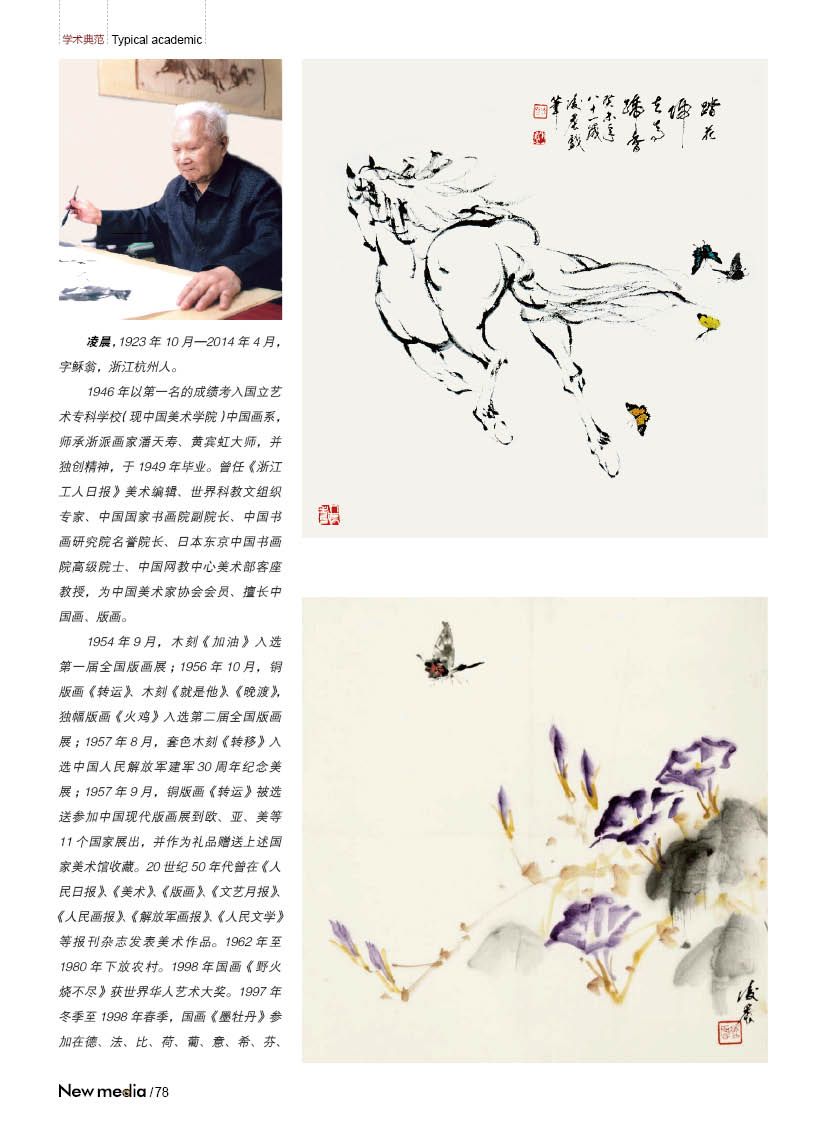 学术典范 Typical academic
凌晨，1923 年 10 月—2014 年 4 月，
字稣翁，浙江杭州人。
1946 年以第一名的成绩考入国立艺
术专科学校（现中国美术学院）中国画系，
师承浙派画家潘天寿、黄宾虹大师，并
独创精神，于 1949 年毕业。曾任《浙江
工人日报》美术编辑、世界科教文组织
专家、中国国家书画院副院长、中国书
画研究院名誉院长、日本东京中国书画
院高级院士、中国网教中心美术部客座
教授，为中国美术家协会会员、擅长中
国画、版画。
1954 年 9 月，木刻《加油》入选
第一届全国版画展；1956 年 10 月，铜
版画《转运》、木刻《就是他》、《晚渡》，
独幅版画《火鸡》入选第二届全国版画
展；1957 年 8 月，套色木刻《转移》入
选中国人民解放军建军 30 周年纪念美
展；1957 年 9 月，铜版画《转运》被选
送参加中国现代版画展到欧、亚、美等
11 个国家展出，并作为礼品赠送上述国
家美术馆收藏。20 世纪 50 年代曾在《人
民日报》、《美术》、《版画》、《文艺月报》、
《人民画报》、《解放军画报》、《人民文学》
等报刊杂志发表美术作品。1962 年至
1980 年下放农村。1998 年国画《野火
烧不尽》获世界华人艺术大奖。1997 年
冬季至 1998 年春季，国画《墨牡丹》参
加在德、法、比、荷、葡、意、希、芬、
踏花
归
去马
蹄香
癸未年
八十一岁
凌晨戏
笔
凌晨
New media /78